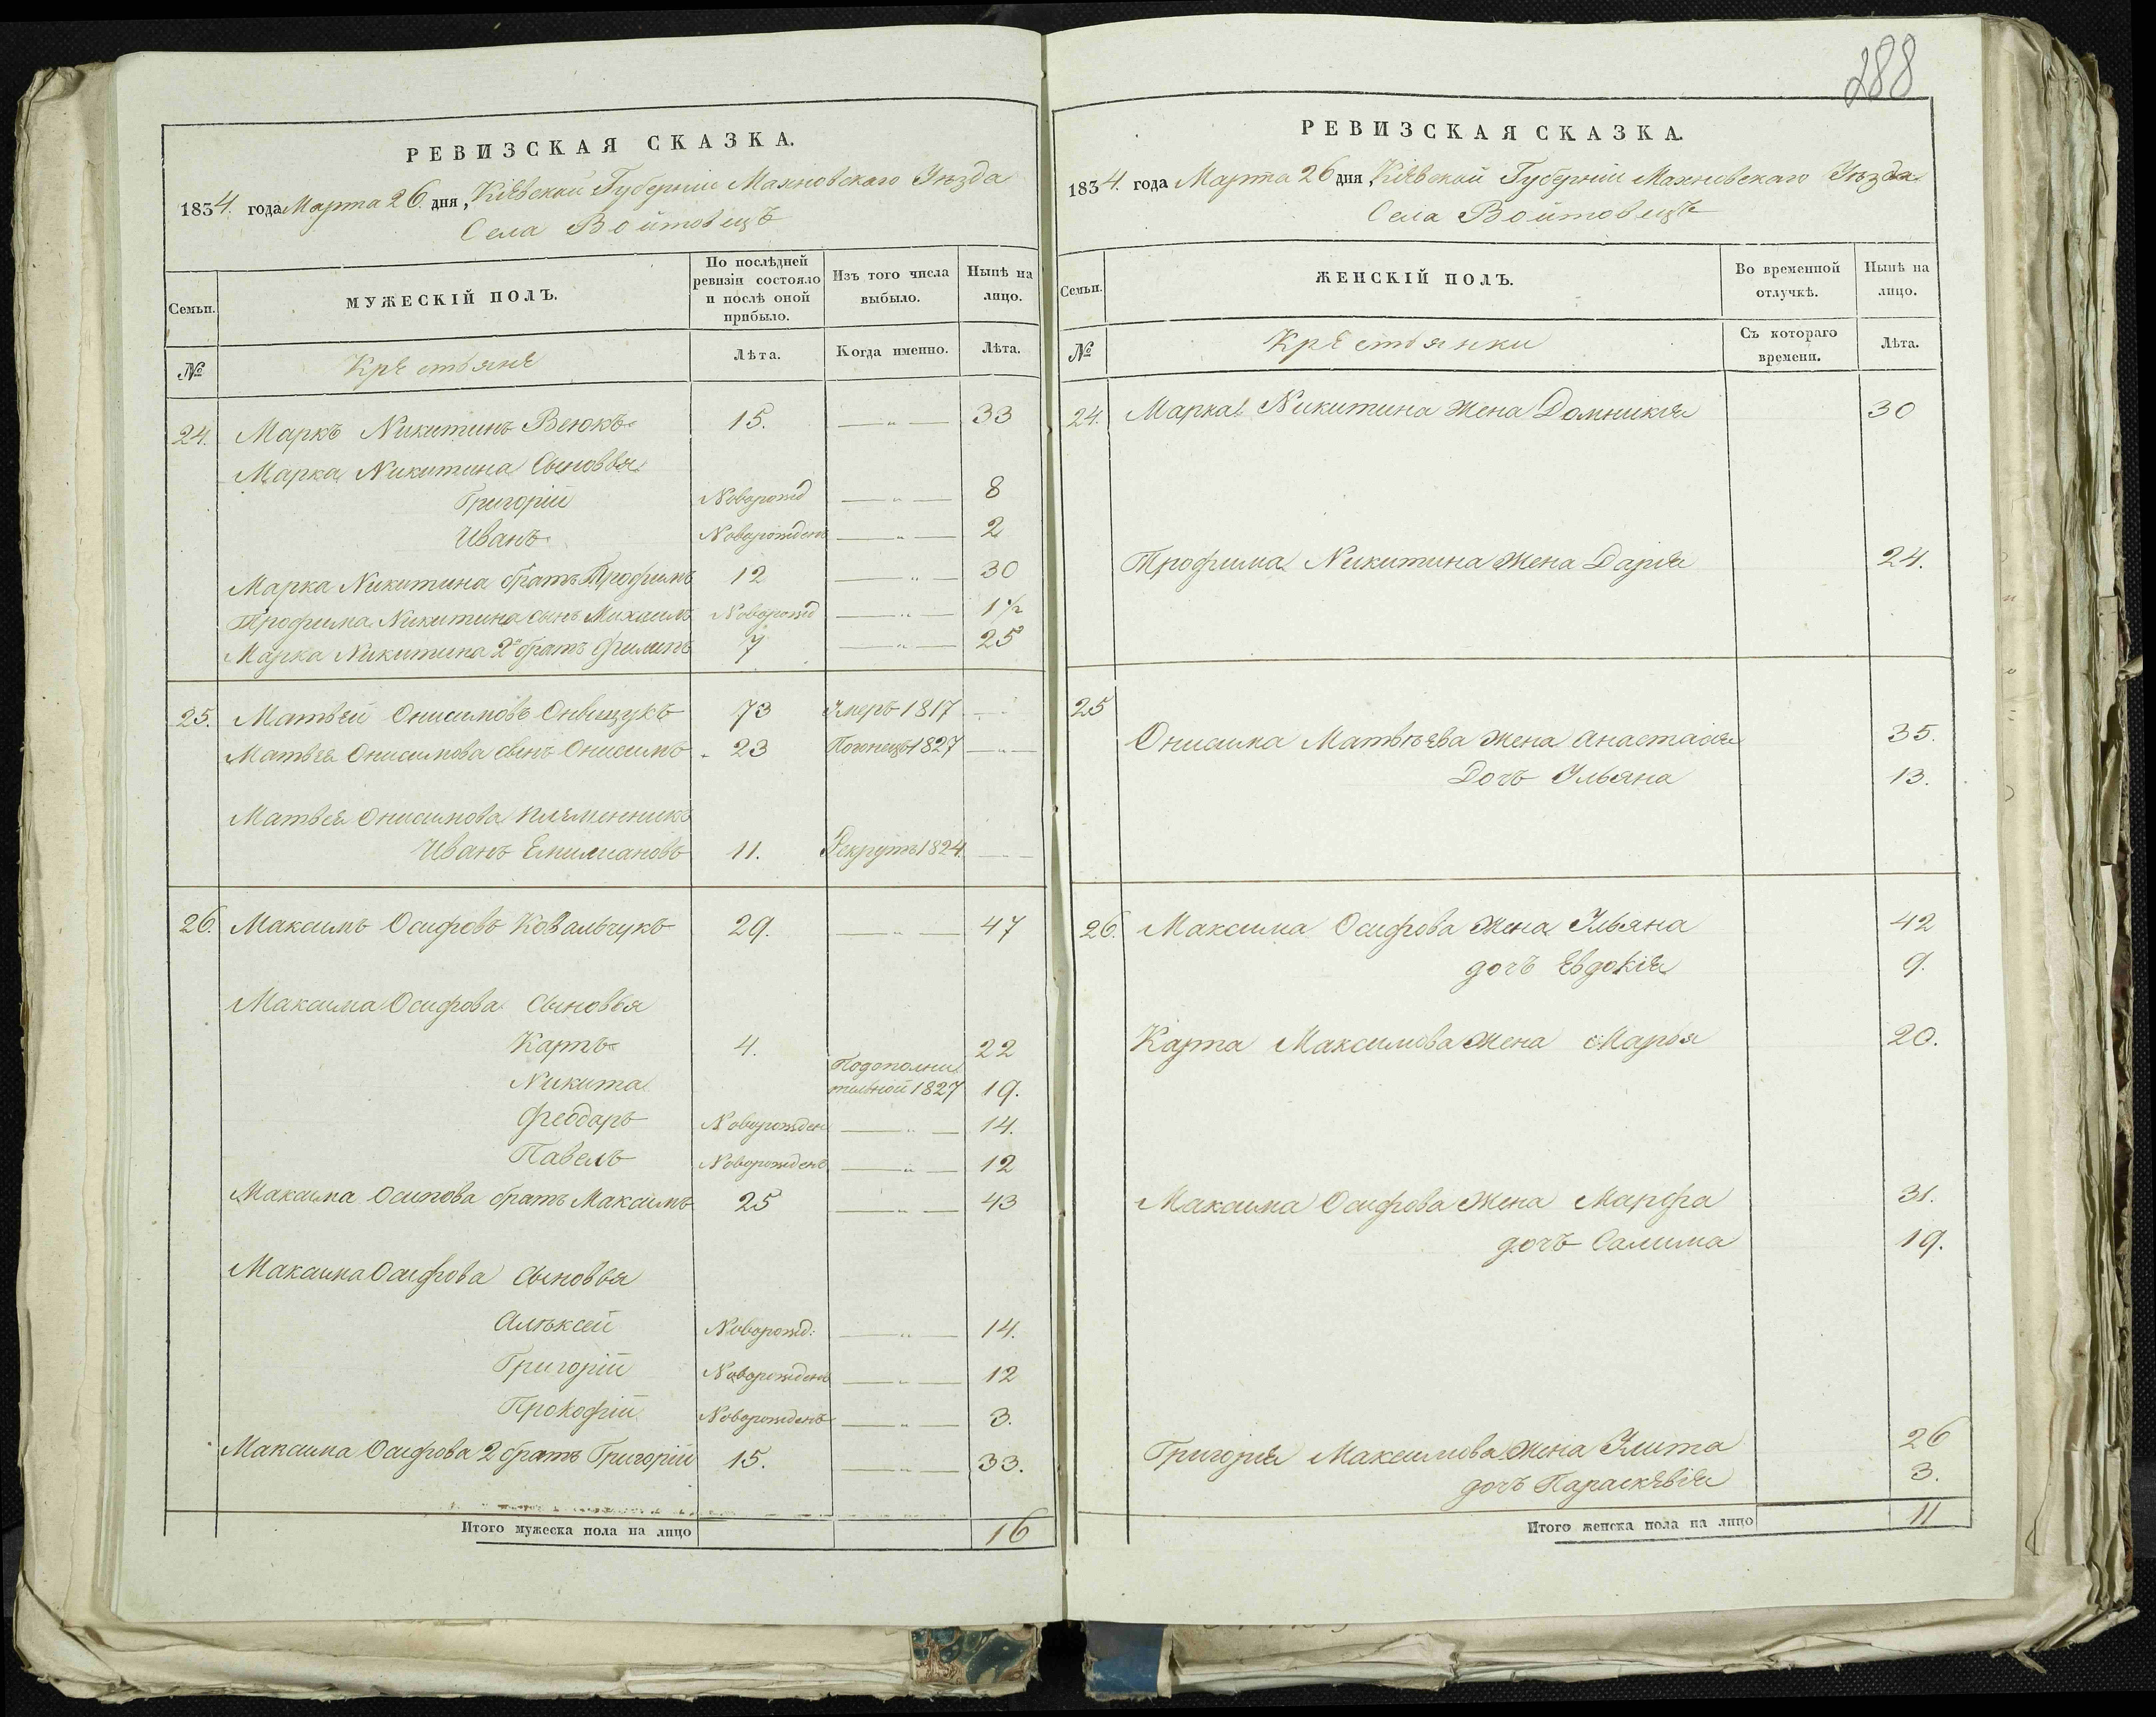 288
РЕВИЗСКАЯ СКАЗКА.
1834. года Марта 26. дня, Кіевской Губерніи Махновскаго Уѣзда
Села Войтовецъ
Семьи.
МУЖЕСКІЙ ПОЛЪ.
По послѣдней ревизіи состояло и послѣ оной прибыло.
Изъ того числа выбыло.
Нынѣ на лицо.
№ Крестьяне Лѣта. Когда именно. Лѣта.
24. Маркъ Никитинъ Веюкъ 15. — „ — 33
Марка Никитина Сыновья
Григорій Новорожд — „ — 8
Иванъ Новорожденъ — „ — 2
Марка Никитина братъ Трофимъ 12 — „ — 30
Трофима Никитина сынъ Михаилъ Новорожд — „ — 1 1/2
Марка Никитина 2й братъ Филипъ 7 — „ — 25
25. Матвей Онисимовъ Онищукъ 73 Умеръ 1817 — „
Матвея Онисимова сынъ Онисимъ 23 1827 — „ —
Матвея Онисимова племенникъ
Иванъ Емилиановъ 11. Рекрутъ 1824. — —
26. Максимъ Осифовъ Ковальчукъ 29. — „ — 47
Максима Осифова Сыновья
Карпъ 4. 22
Никита Подополнительной 1827 19.
Феодаръ Новорожден — „ — 14.
Павелъ Новорожденъ — „ — 12
Максима Осипова братъ Максимъ 25 — „ — 43
Максима Осифова Сыновья
Алѣксей Новорожд: — „ — 14.
Григорій Новорожденъ — „ — 12
Прокофій Новорожденъ — „ — 3.
Максима Осифова 2 братъ Григорій 15. — „ — 33.
Итого мужеска пола на лицо 16
РЕВИЗСКАЯ СКАЗКА.
1834. года Марта 26 дня, Кіевской Губерніи Махновскаго Уѣзда
Села Войтовецъ
Семьи.
ЖЕНСКІЙ ПОЛЪ.
Во временной отлучкѣ.
Нынѣ на лицо.
№ Крестьянки Съ котораго времени. Лѣта.
24. Марка Никитина жена Домникія 30
Трофима Никитина жена Дарія 24.
25
Онисима Матвѣева жена Анастасія 35.
Дочъ Ульяна 13.
26. Максима Осифова жена Ульяна 42
дочъ Евдокія 9.
Карпа Максимова жена Марья 20.
Максима Осифова жена Марфа 31.
дочъ Салима 19.
Григорія Максимова жена Улита 26
дочъ Параскевія 3.
Итого женска пола на лицо 11